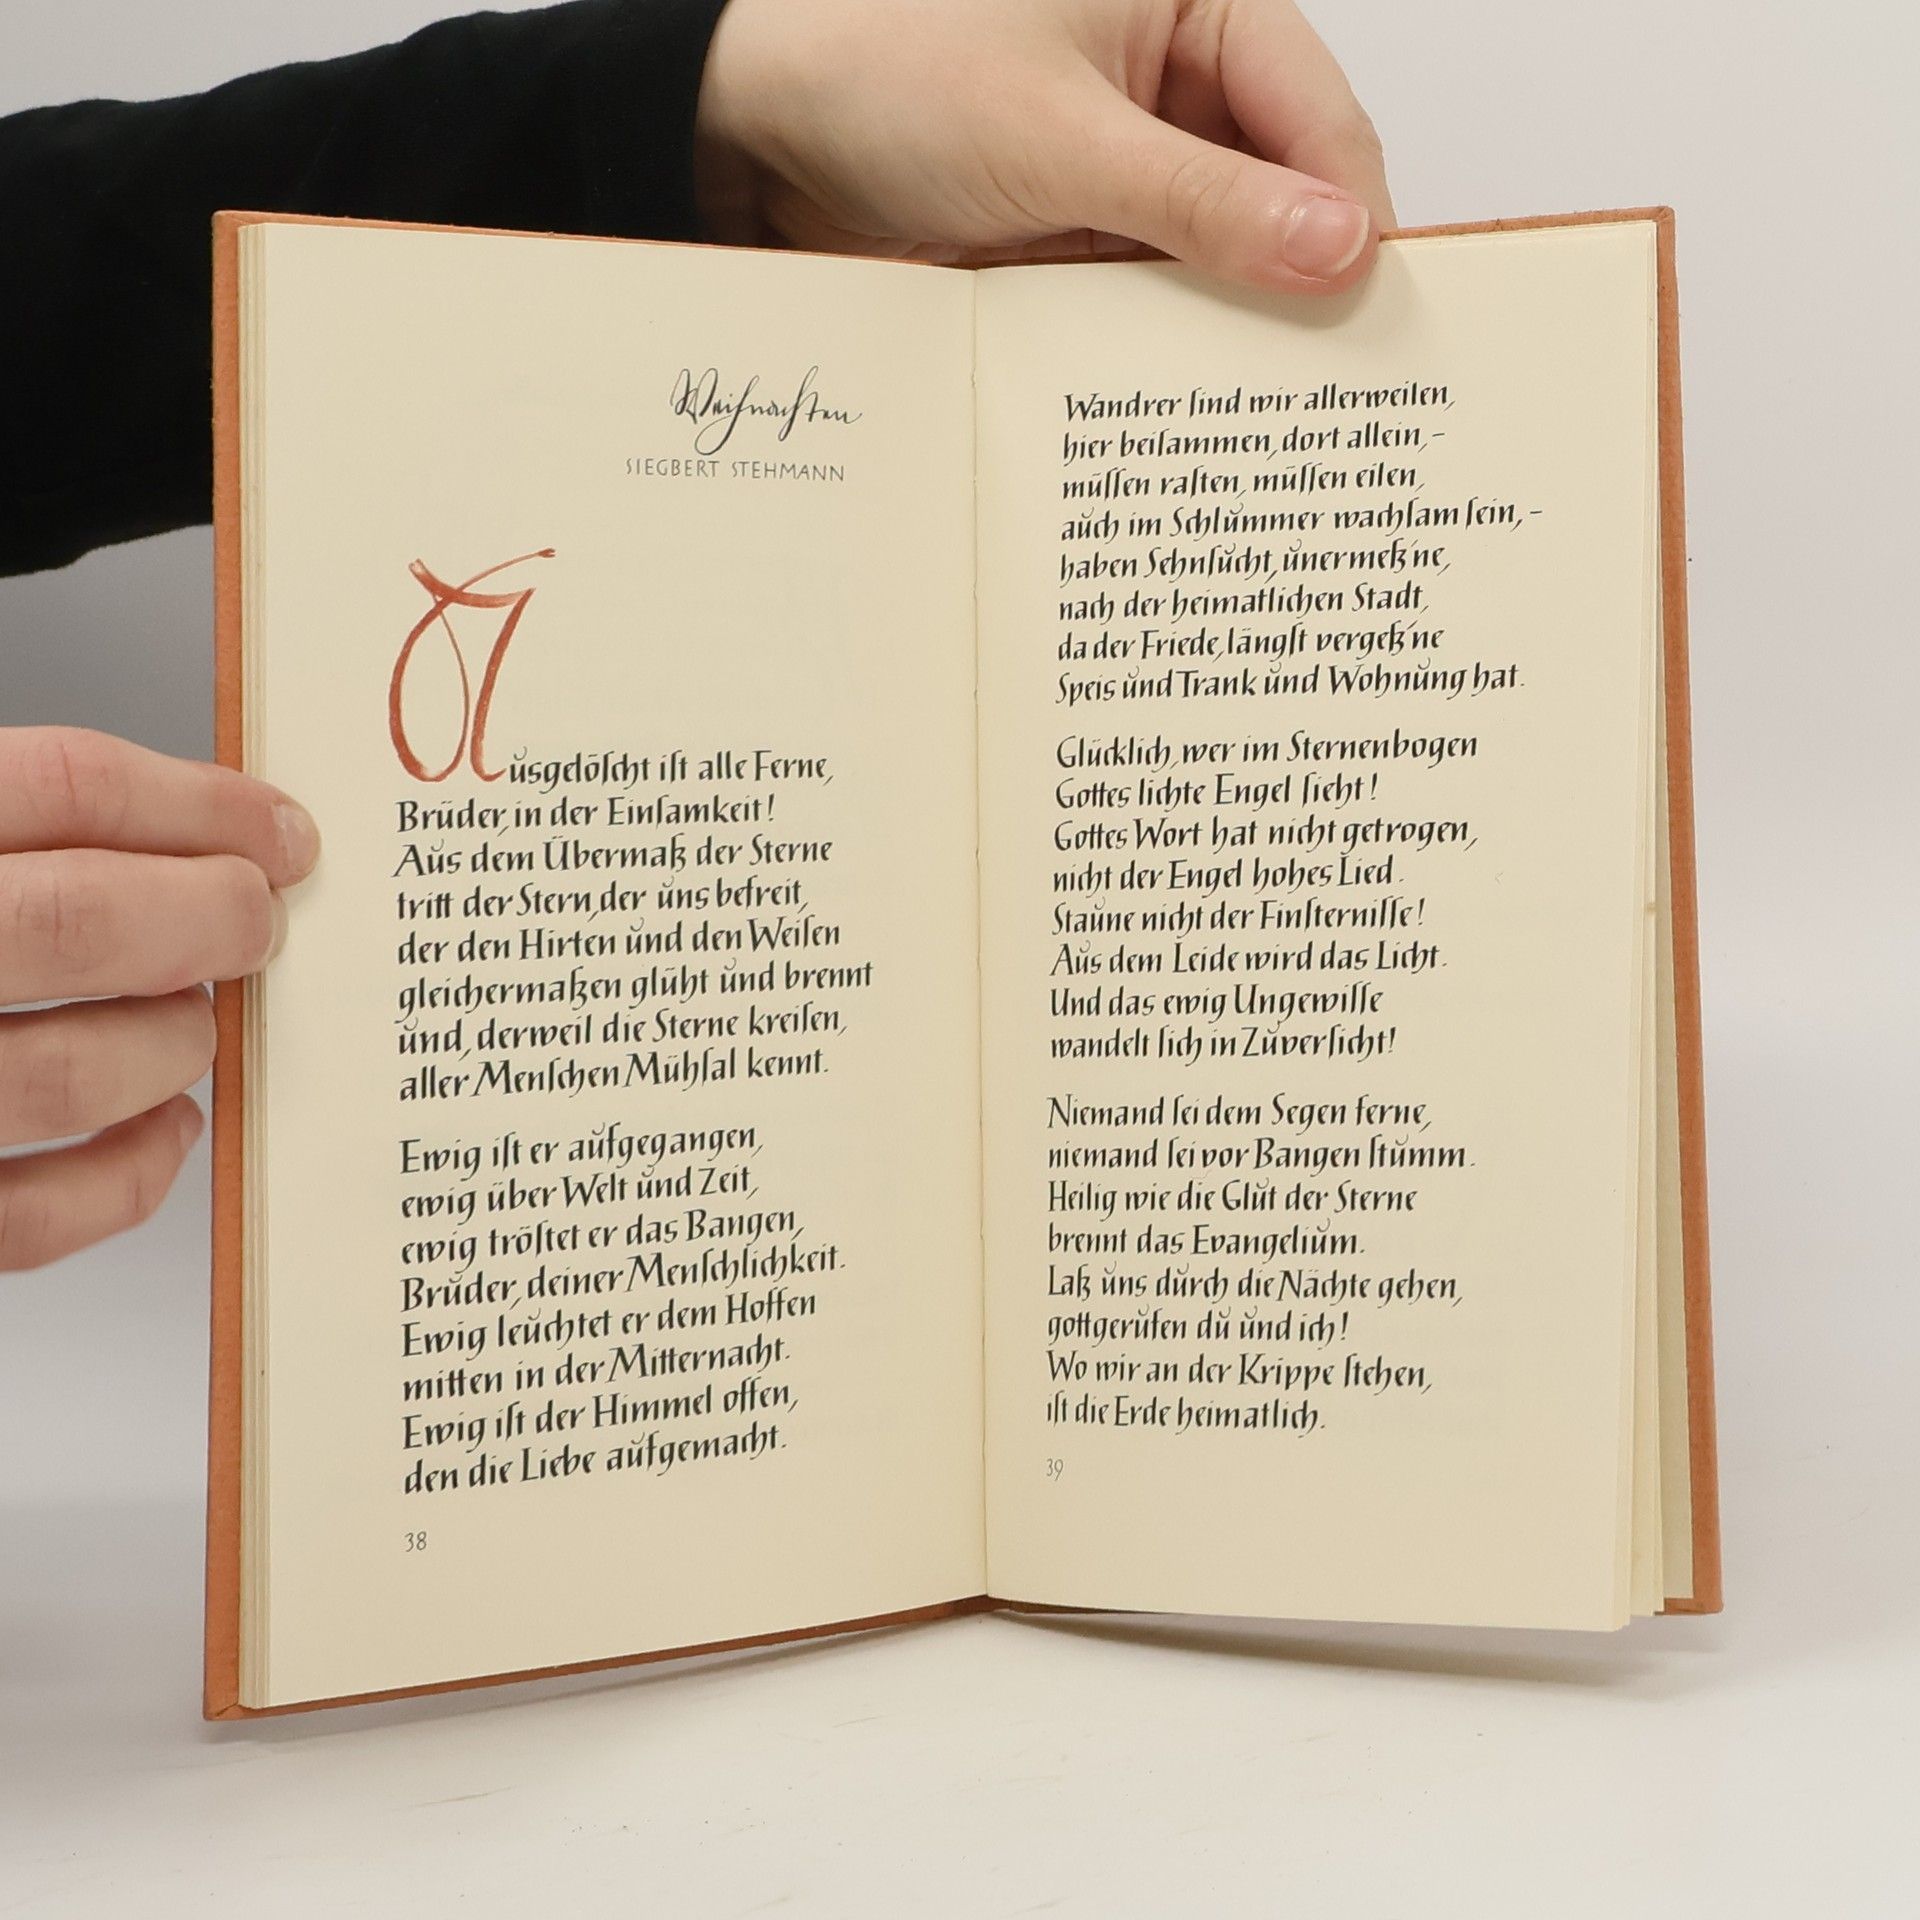 Weihnachten
SIEGBERT STEHMANN
Ausgelöſcht iſt alle Ferne,
Brüder, in der Einſamkeit!
Aus dem Übermaß der Sterne
tritt der Stern, der uns befreit,
der den Hirten und den Weiſen
gleichermaßen glüht und brennt
und, derweil die Sterne kreiſen,
aller Menſchen Mühſal kennt.
Ewig iſt er aufgegangen,
ewig über Welt und Zeit,
ewig tröſtet er das Bangen,
Bruder, deiner Menſchlichkeit.
Ewig leuchtet er dem Hoffen
mitten in der Mitternacht.
Ewig iſt der Himmel offen,
den die Liebe aufgemacht.
38
Wandrer ſind wir allerweilen,
hier beiſammen, dort allein, –
müſſen raſten, müſſen eilen,
auch im Schlummer wachſam ſein, –
haben Sehnſucht, unermeß'ne,
nach der heimatlichen Stadt,
da der Friede, längſt vergeß'ne
Speis und Trank und Wohnung hat.
Glücklich, wer im Sternenbogen
Gottes lichte Engel ſieht!
Gottes Wort hat nicht getrogen,
nicht der Engel hohes Lied.
Staune nicht der Finſterniſſe!
Aus dem Leide wird das Licht.
Und das ewig Ungewiſſe
wandelt ſich in Zuverſicht!
Niemand ſei dem Segen ferne,
niemand ſei vor Bangen ſtumm.
Heilig wie die Glut der Sterne
brennt das Evangelium.
Laß uns durch die Nächte gehen,
gottgerufen du und ich!
Wo wir an der Krippe ſtehen,
iſt die Erde heimatlich.
39